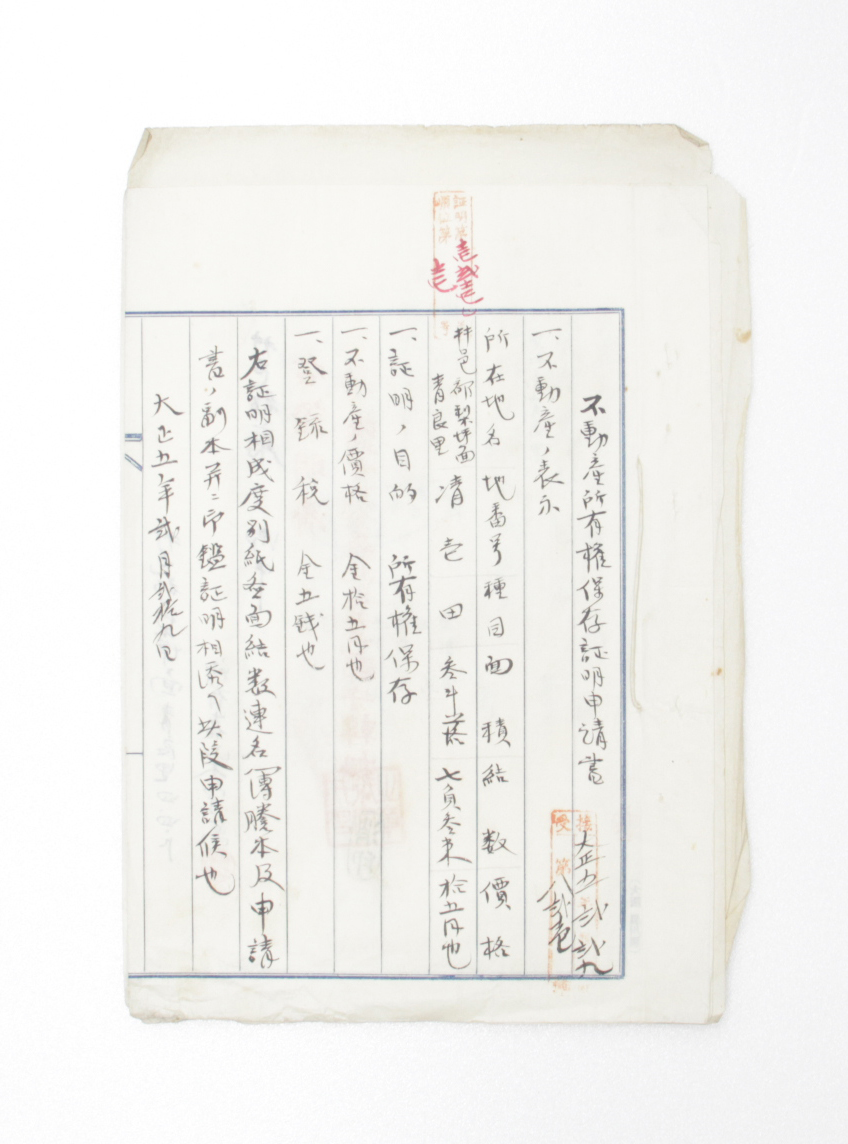 不動産所有権保存証明申請書
一、不動産ノ表示
所在地名 地番号 種目 面積 結数 價格
井邑郡梨坪面
青良里 凊 壱 田 参斗落 七負参束 拾五円也
一、証明ノ目的 所有権保存
一、不動産ノ價格 金拾五円也
一、登録税 金五銭也
右証明相成度別紙各面結数連名簿謄本及申請
書ノ副本并ニ印鑑証明相添ヘ此段申請候也
大正五年貳月貳拾九日
大正五 貳 貳九
第 八貳壱